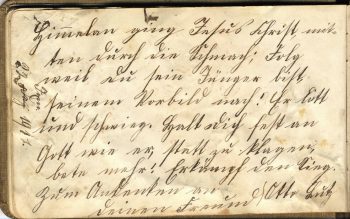 Himmelan ging Jesus Christ mit-
ten durch die Schmach; Folg
weil du sein Jünger bist
seinem Vorbild nach! Er litt
und schwieg. Halt dich fest an
Gott wie er, statt zu klagen,
bete mehr! Erkämpf den Sieg.
Zum Andenken an
deinen Freund Otto